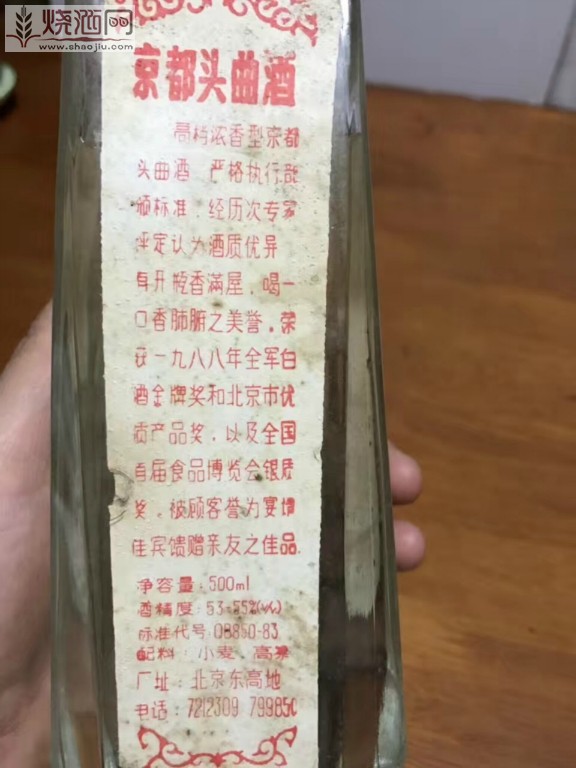 烧酒网
www.shaojiu.com
京都头曲酒
高档浓香型京都
头曲酒 严格执行部
颁标准．经历次专家
评定认为酒质优异
具开瓶香满屋．喝一
口香肺腑之美誉．荣
获一九八八年全军白
酒金牌奖和北京市优
质产品奖，以及全国
首届食品博览会银质
奖．被顾客誉为宴
佳宾馈赠亲友之佳品
净容量：500ml
酒精度：53-55%(v/v)
标准代号 QB850-83
配料：小麦．高粱
厂址：北京东高地
电话：7212309 799850